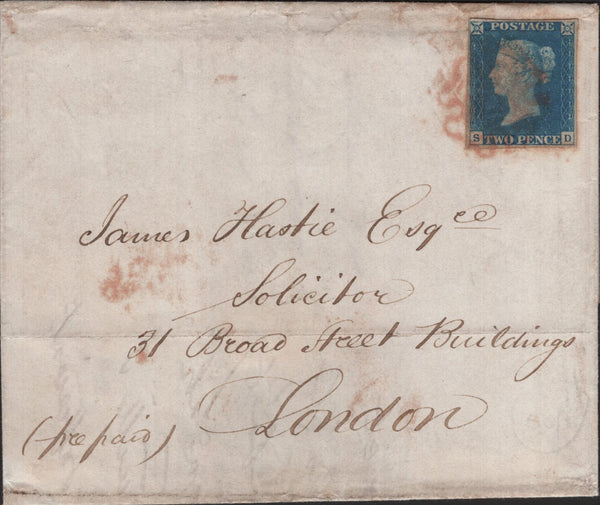 POSTAGE
S TWO PENCE D
James Hastie Esqre
Solicitor
31 Broad Street Buildings
London
(prepaid)